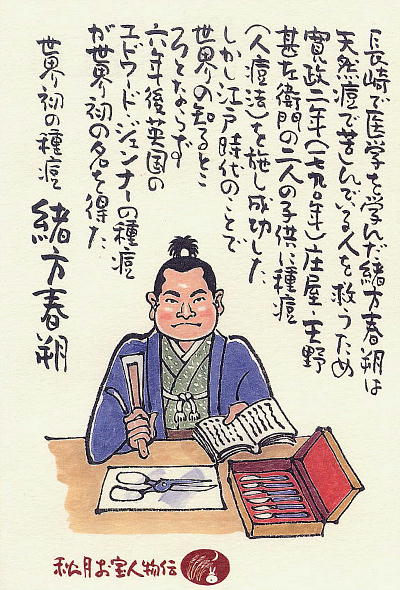 長崎で医学を学んだ緒方春朔は
天然痘で苦しんでいる人を救うため
寛政二年(一七九〇年)庄屋・天野
甚左衛門の二人の子供に種痘
(人痘法)を施し成功した
しかし江戸時代のことで
世界の知るとこ
ろとならず
六年後英国の
エドワード・ジェンナーの種痘
が世界初の名を得た
世界初の種痘
緒方春朔
秋月お宝人物伝